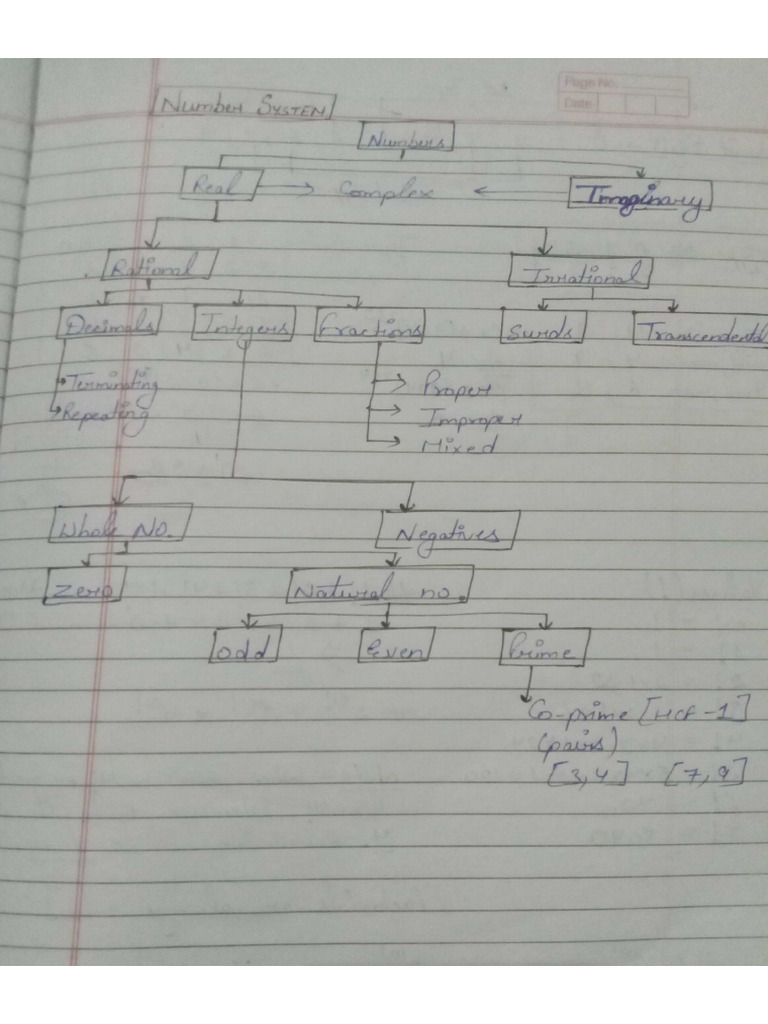 Page No.
Date
Number SYSTEM
Numbers
Real Complex Imaginary
Rational Irrational
Decimals Integers Fractions Surds Transcendental
Terminating Proper
Repeating Improper
Mixed
Whole No. Negatives
Zero Natural no.
odd Even Prime
Co-prime [HCF-1]
(pairs)
[3,4] [7,9]